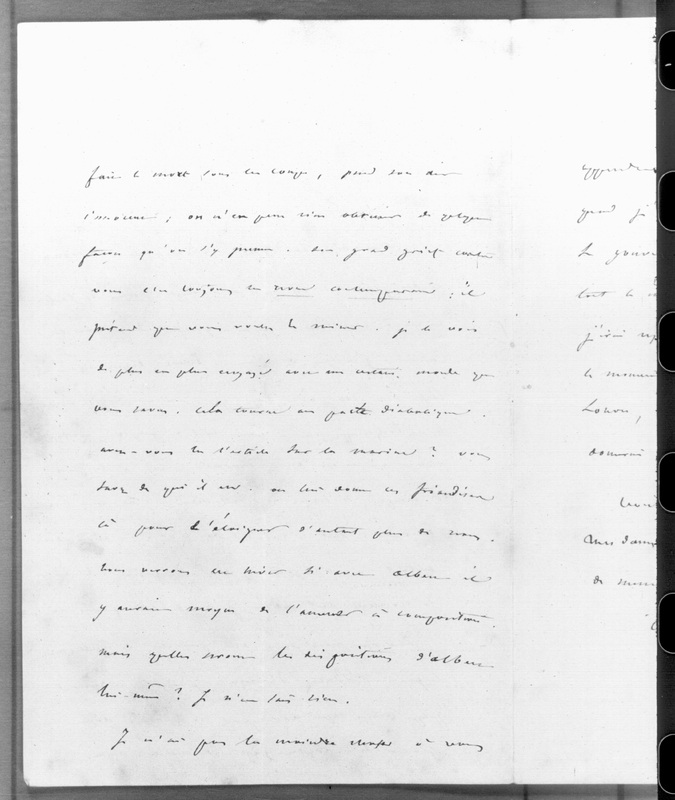 faire le mort sous les coups, prend son air
innocent; on n'en peut rien obtenir de quelque
façon qu'on s'y prenne. Son grand grief contre
vous est toujours la revue contemporaine; il
prétend que vous voulez le miner. je le vois
de plus en plus engagé avec un certain monde que
vous savez. Cela tourne au pacte diabolique.
avez-vous lu l'article sur la marine? vous
savez de qui il est. on lui donne ces friandises
là pour l'éloigner d'autant plus de nous.
nous verrons cet hiver si avec alban il
y aurait moyen de l'amener à composition.
mais quelles seront les dispositions d'alban
lui-même? Je n'en sais rien.
Je n'ai pas la moindre chose à vous
apprendre
quand j'
le gouve
tout le
j'irai
le moment
Louvre,
donnerai
Mes
de